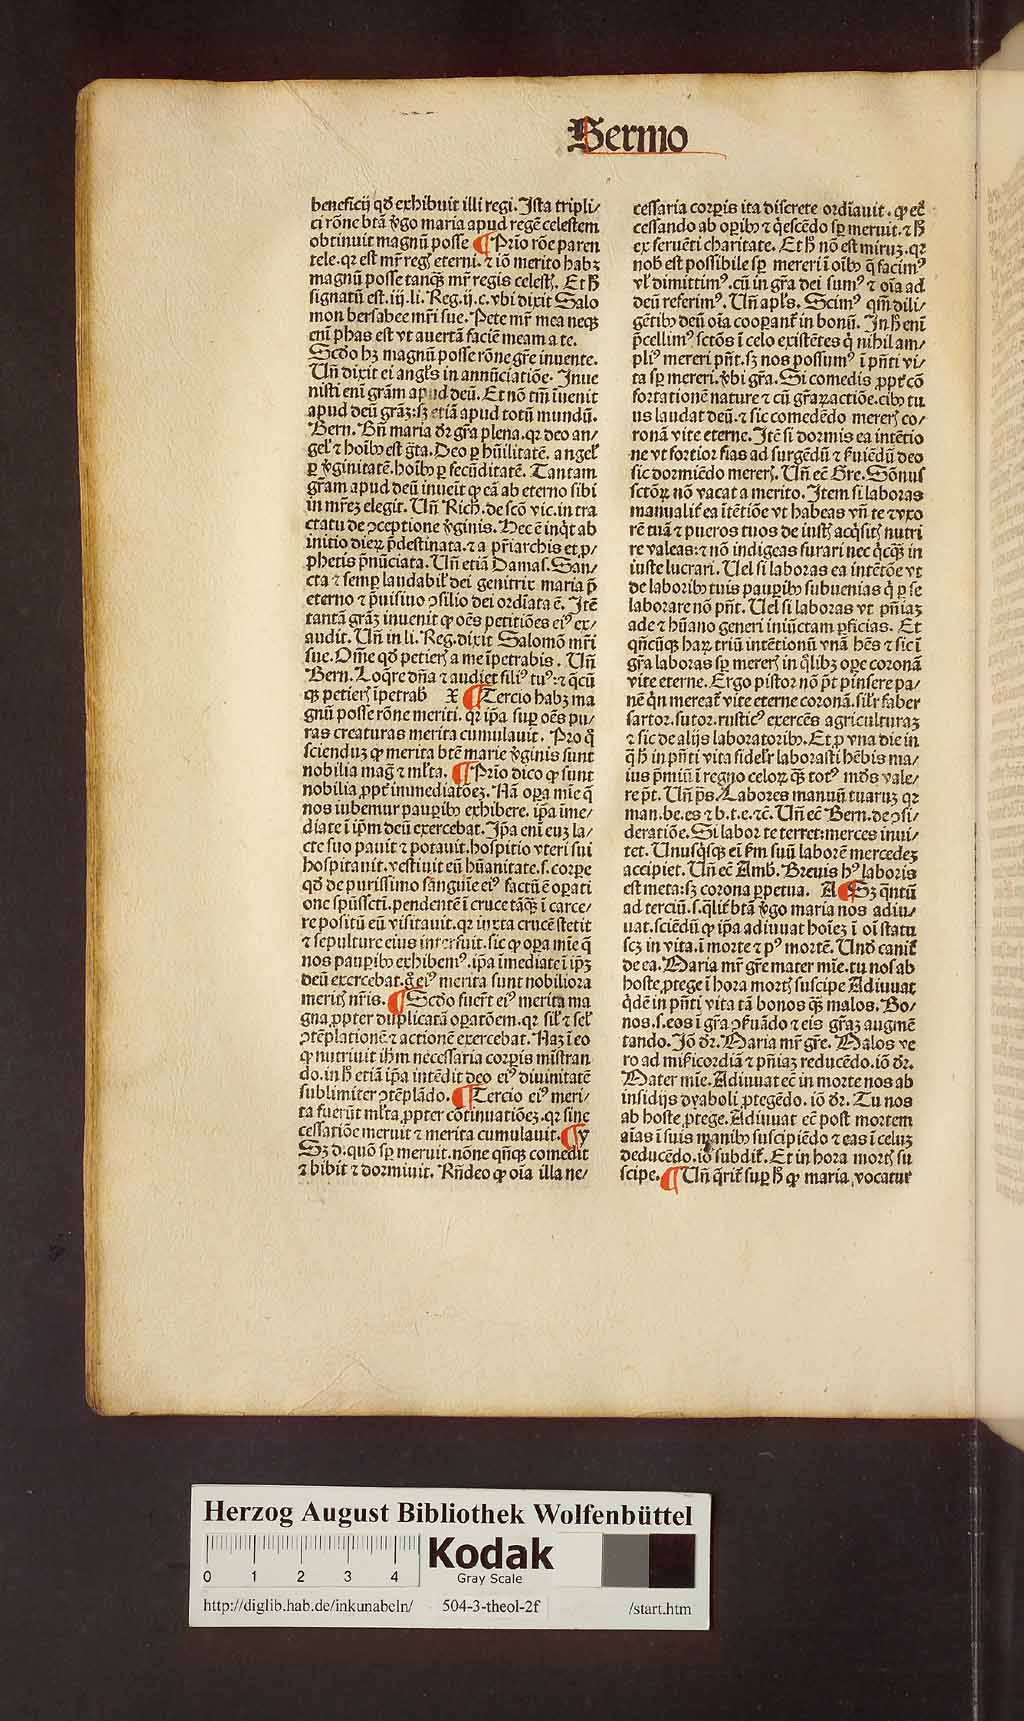 Sermo
beneficij qḋ exhibuit illi regi. Ista tripli/
ci rōne btā v̇go maria apud regē celestem
obtinuit magnū posse ¶ Prīo rōe paren
tele. qꝛ est mr̄ regꝭ eterni. ⁊ iō merito habꝫ
magnū posse tanqꝫ mr̄ regis celestꝭ. Et ħ
signatū est .iij. li. Reg. ij. c. vbi dixit Salo
mon bersabee mr̄i sue. Pete mr̄ mea neqꝫ
eni phas est vt auertā faciē meam a te.
Scḋo hꝫ magnū posse rōne gr̄e inuente.
Vn̄ dixit ei angl̓s in annūciatiōe. Inue
nisti eni grām apud deū. Et nō tm̄ īuenit
apud deū grāꝫ: sꝫ etiā apud totū mundū.
Bern. Bn̄ maria dr̄ gr̄a plena. qꝛ deo an/
gel̓ ⁊ hoībꝰ est gr̄ta. Deo ꝑ hūilitatē. angel̓
ꝑ v̇ginitatē. hoībꝰ ꝑ fecūditatē. Tantam
gr̄am apud deū inueit ꝙ eā ab eterno sibi
in mr̄eꝫ elegit. Vn̄ Rich. de scō vic. in tra
ctatu de ↄceptione v̇ginis. Hec ē inqt ab
initio dieꝝ p̄destinata. ⁊ a pr̄iarchis et ꝓ/
phetis p̄nūciata. Vn̄ etiā Damas. San/
cta ⁊ semꝑ laudabil̓ dei genitrix maria p̄
eterno ⁊ p̄uisiuo ↄsilio dei ordīata ē. Itē
tantā grāꝫ inuenit ꝙ oēs petitiōes eiꝰ ex/
audit. Vn̄ in li. Reg. dixit Salomō mr̄i
sue. Om̄e qḋ petierꝭ a me īpetrabis. Vn̄
Bern. Loqre dn̄a ⁊ audiet filiꝰ tuꝰ: ⁊ qcū
qꝫ petierꝭ īpetrab X ¶ Tercio habꝫ ma
gnū posse rōne meriti. qꝛ ip̄a suꝑ oēs pu/
ras creaturas merita cumulauit. Pro q
sciendūꝫ ꝙ merita btē marie v̇ginis sunt
nobilia mag̃ ⁊ ml̓ta. ¶ Prīo dico ꝙ sunt
nobilia ꝓpt̓ immediatōeꝫ. Nā oꝑa mīe q̄
nos iubemur pauꝑibꝰ exhibere. ip̄a īme/
diate ī ip̄m deū exercebat. Ip̄a eni euꝫ la/
cte suo pauit ⁊ potauit. hospitio vteri sui
hospitauit. vestiuit eū hūanitate. s. corꝑe
qḋ de purissimo sanguīe eiꝰ factū ē oꝑati
one spūsscti. pendentē ī cruce tāqꝫ ī carce/
re positū eū visitauit. qꝛ iuxta crucē stetit
⁊ sepulture eius interfuit. sic ꝙ oꝑa mīe q̄
nos pauꝑibꝰ exhibemꝰ. ip̄a īmediate ī ip̄ꝫ
deū exercebat. g̊ eiꝰ merita sunt nobiliora
meritꝭ nr̄is. ¶ Scḋo suer̄t eiꝰ merita ma
gna ꝓpter duplicatā oꝑatōem. qꝛ sil̓ ⁊ sel̓
ↄtēplationē ⁊ actionē exercebat. Naꝫ ī eo
ꝙ nutriuit ih̄m necessaria corꝑis mīstran
do. in ħ etiā ip̄a intēdit deo eiꝰ diuinitatē
sublimiter ↄtēplādo. ¶ Tercio eiꝰ meri/
ta fuerūt ml̓ta ꝓpter cōtinuatiōeꝫ. qꝛ sine
cessatiōe meruit ⁊ merita cumulauit. ¶ y
Sꝫ d. quō sꝑ meruit. nōne qn̄qꝫ comedit
⁊ bibit ⁊ dormiuit. Rn̄deo ꝙ oīa illa ne/
cessaria corꝑis ita discrete ordīauit. ꝙ ec̄
cessando ab oꝑibꝰ ⁊ qescēdo sꝑ meruit. ⁊ ħ
ex feruēti charitate. Et ħ nō est miruꝫ. qꝛ
nob̓ est possibile sꝑ mereri ī oībꝰ q̄ facimꝰ
vl̓ dimittimꝰ. cū in gr̄a dei sumꝰ ⁊ oīa ad
deū referimꝰ. Vn̄ apl̓s. Scimꝰ qm̄ dili/
gētibꝰ deū oīa cooꝑant̓ in bonū. In ħ enī
p̄cellimꝰ sctōs ī celo existētes q nihil am/
pliꝰ mereri pn̄t. sꝫ nos possumꝰ ī pn̄ti vi/
ta sꝑ mereri. v̇bi gr̄a. Si comedis ꝓpt̓ cō
fortationē nature ⁊ cū gr̄aꝝ actiōe. cibꝰ tu
us laudat deū. ⁊ sic comedēdo mererꝭ co/
ronā vite eterne. Itē si dormis ea intētio
ne vt fortior fias ad surgēdū ⁊ ẜuiēdū deo
sic dormiēdo mererꝭ. Vn̄ ec̄ Gre. Sōnus
sctōꝝ nō vacat a merito. Item si laboras
manualit̓ ea ītētiōe vt habeas vn̄ te ⁊ vxo
rē tuā ⁊ pueros tuos de iustꝭ acqsitꝭ nutri
re valeas: ⁊ nō indigeas furari nec qcqꝫ in
iuste lucrari. Uel si laboras ea intētōe vt
de laboribꝰ tuis pauꝑibꝰ subuenias q ꝑ se
laborare nō pn̄t. Uel si laboras vt pn̄iaꝫ
ade ⁊ hūano generi iniūctam ꝑficias. Et
qn̄cūqꝫ haꝝ triū intētionū vnā hēs ⁊ sic ī
gr̄a laboras sꝑ mererꝭ in qlibꝫ oꝑe coronā
vite eterne. Ergo pistor nō pt̄ pinsere pa/
nē qn mereat̓ vite eterne coronā. silr̓ faber
sartor. sutor. rusticꝰ exercēs agriculturaꝫ
⁊ sic de alijs laboratoribꝰ. Et ꝓ vna die in
q̄ ħ in pn̄ti vita fidelr̓ laborasti hēbis ma/
ius p̄miū ī regno celoꝝ qꝫ totꝰ mūdꝰ vale/
re pt̄. Vn̄ ps̄. Labores manuū tuaruꝫ qꝛ
man. be. es ⁊ b. t. e. ⁊c. Vn̄ ec̄ Bern. de ↄsi/
deratiōe. Si labor te terret: merces inui/
tet. Unusqsqꝫ ei ẜm suū laborē mercedeꝫ
accipiet. Vn̄ ec̄ Amb. Breuis hꝰ laboris
est meta: sꝫ corona ꝑpetua. A ¶ Sꝫ qntū
ad terciū. s. qlit̓ btā v̇go maria nos adiu/
uat. sciēdū ꝙ ip̄a adiuuat hoīeꝫ ī oī statu
scꝫ in vita. ī morte ⁊ pꝰ mortē. Unḋ canit̓
de ea. Maria mr̄ gr̄e mater mīe. tu nos ab
hoste ꝓtege ī hora mortꝭ suscipe Adiuuat
qdē in pn̄ti vita tā bonos qꝫ malos. Bo/
nos. s. eos ī gr̄a ↄẜuādo ⁊ eis gr̄aꝫ augmē
tando. Iō dr̄. Maria mr̄ gr̄e. Malos ve
ro ad mīẜicordiā ⁊ pn̄iaꝫ reducēdo. iō dr̄.
Mater mīe. Adiuuat ec̄ in morte nos ab
insidijs dyaboli ꝓtegēdo. iō dr̄. Tu nos
ab hoste ꝓtege. Adiuuat ec̄ post mortem
aīas ī suis manibꝰ suscipiēdo ⁊ eas ī celuꝫ
deducēdo. iō subdit̓. Et in hora mortꝭ su
scipe. ¶ Vn̄ qrit̓ suꝑ ħ ꝙ maria vocatur
Herzog August Bibliothek Wolfenbüttel
0 1 2 3 4
Kodak
Gray Scale
http://diglib.hab.de/inkunabeln/ 504-3-theol-2f /start.htm